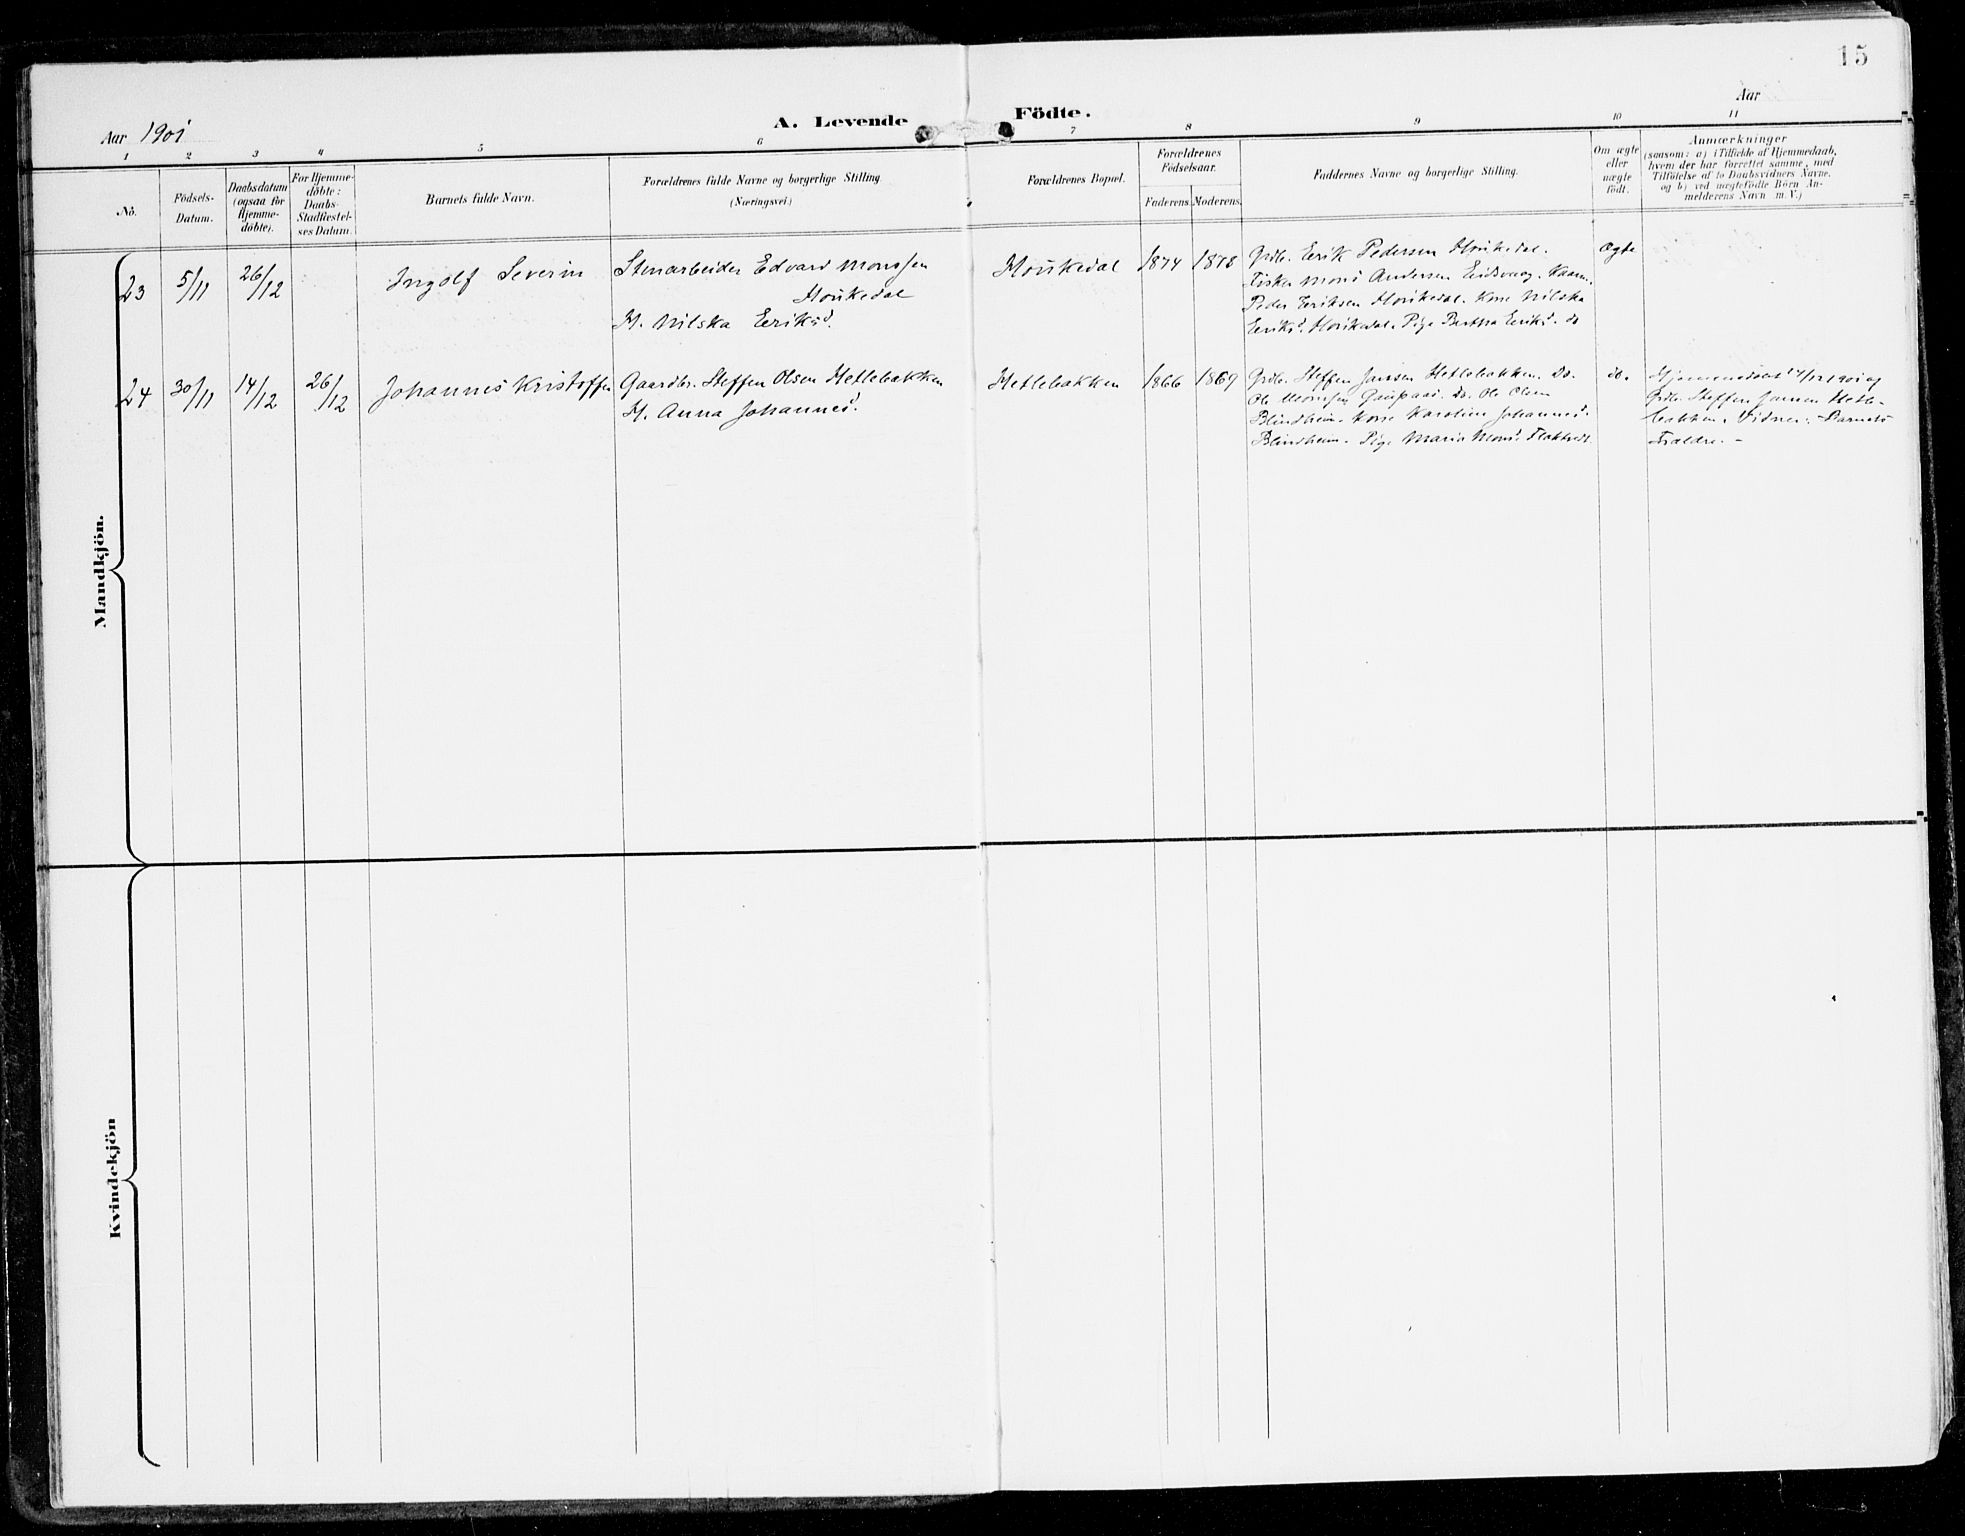 15
Aar 1901
A. Levende Födte.
Aar
1 2 3 4 5 6 7 8 9 10 11
No.
Födsels-
Datum.
Daabsdatum
(ogsaa for
Hjemme-
döbte).
For Hjemme-
döbte:
Daabs-
Stadfæstel-
ses Datum.
Barnets fulde Navn.
Forældrenes fulde Navne og borgerlige Stilling
(Næringsvei.)
Forældrenes Bopæl.
Forældrenes
Födselsaar.
Faderens. Moderens.
Faddernes Navne og borgerlige Stilling.
Om ægte
eller
uægte
födt.
Anmærkninger
(saasom: a) i Tilfælde af Hjemmedaab,
hvem der har forrettet samme, med
Tilföielse af to Daabsvidners Navne,
og b) ved uægtefödte Börn An-
melderens Navn m.V.)
Mandkjön.
23
5/11
26/12
Ingolf Severin
Stenarbeider Edvard Monssen
Houkedal
H. Nilska Eriksd.
Houkedal
1874 1878
Grdb. Erik Pedersen Houkedal.
Fisker Mons Andersen Eidsvaag. Kaarm.
Peder Eriksen Houkedal. Kone Nilska
Eriksd. Houkedal. Pige Bertha Eriksd. do
Ægte
24
30/11
14/12
26/12
Johannes Kristoffer
Gaardbr. Steffen Olsen Hetlebakken
H. Anna Johannesd.
Hetlebakken
1866 1869
Grdb. Steffen Jansen Hetlebakken. Do.
Ole Monssen Gaupaas. Do. Ole Olsen
Blindheim. Kone Karoline Johannesd.
Blindheim. Pige Maria Monsd. Flaktvedt.
do.
Hjemmedöbt 14/12 1901 af
Grdb. Steffen Jansen Hetle-
bakken. Vidner: Barnets
Forældre. -
Kvindekjön